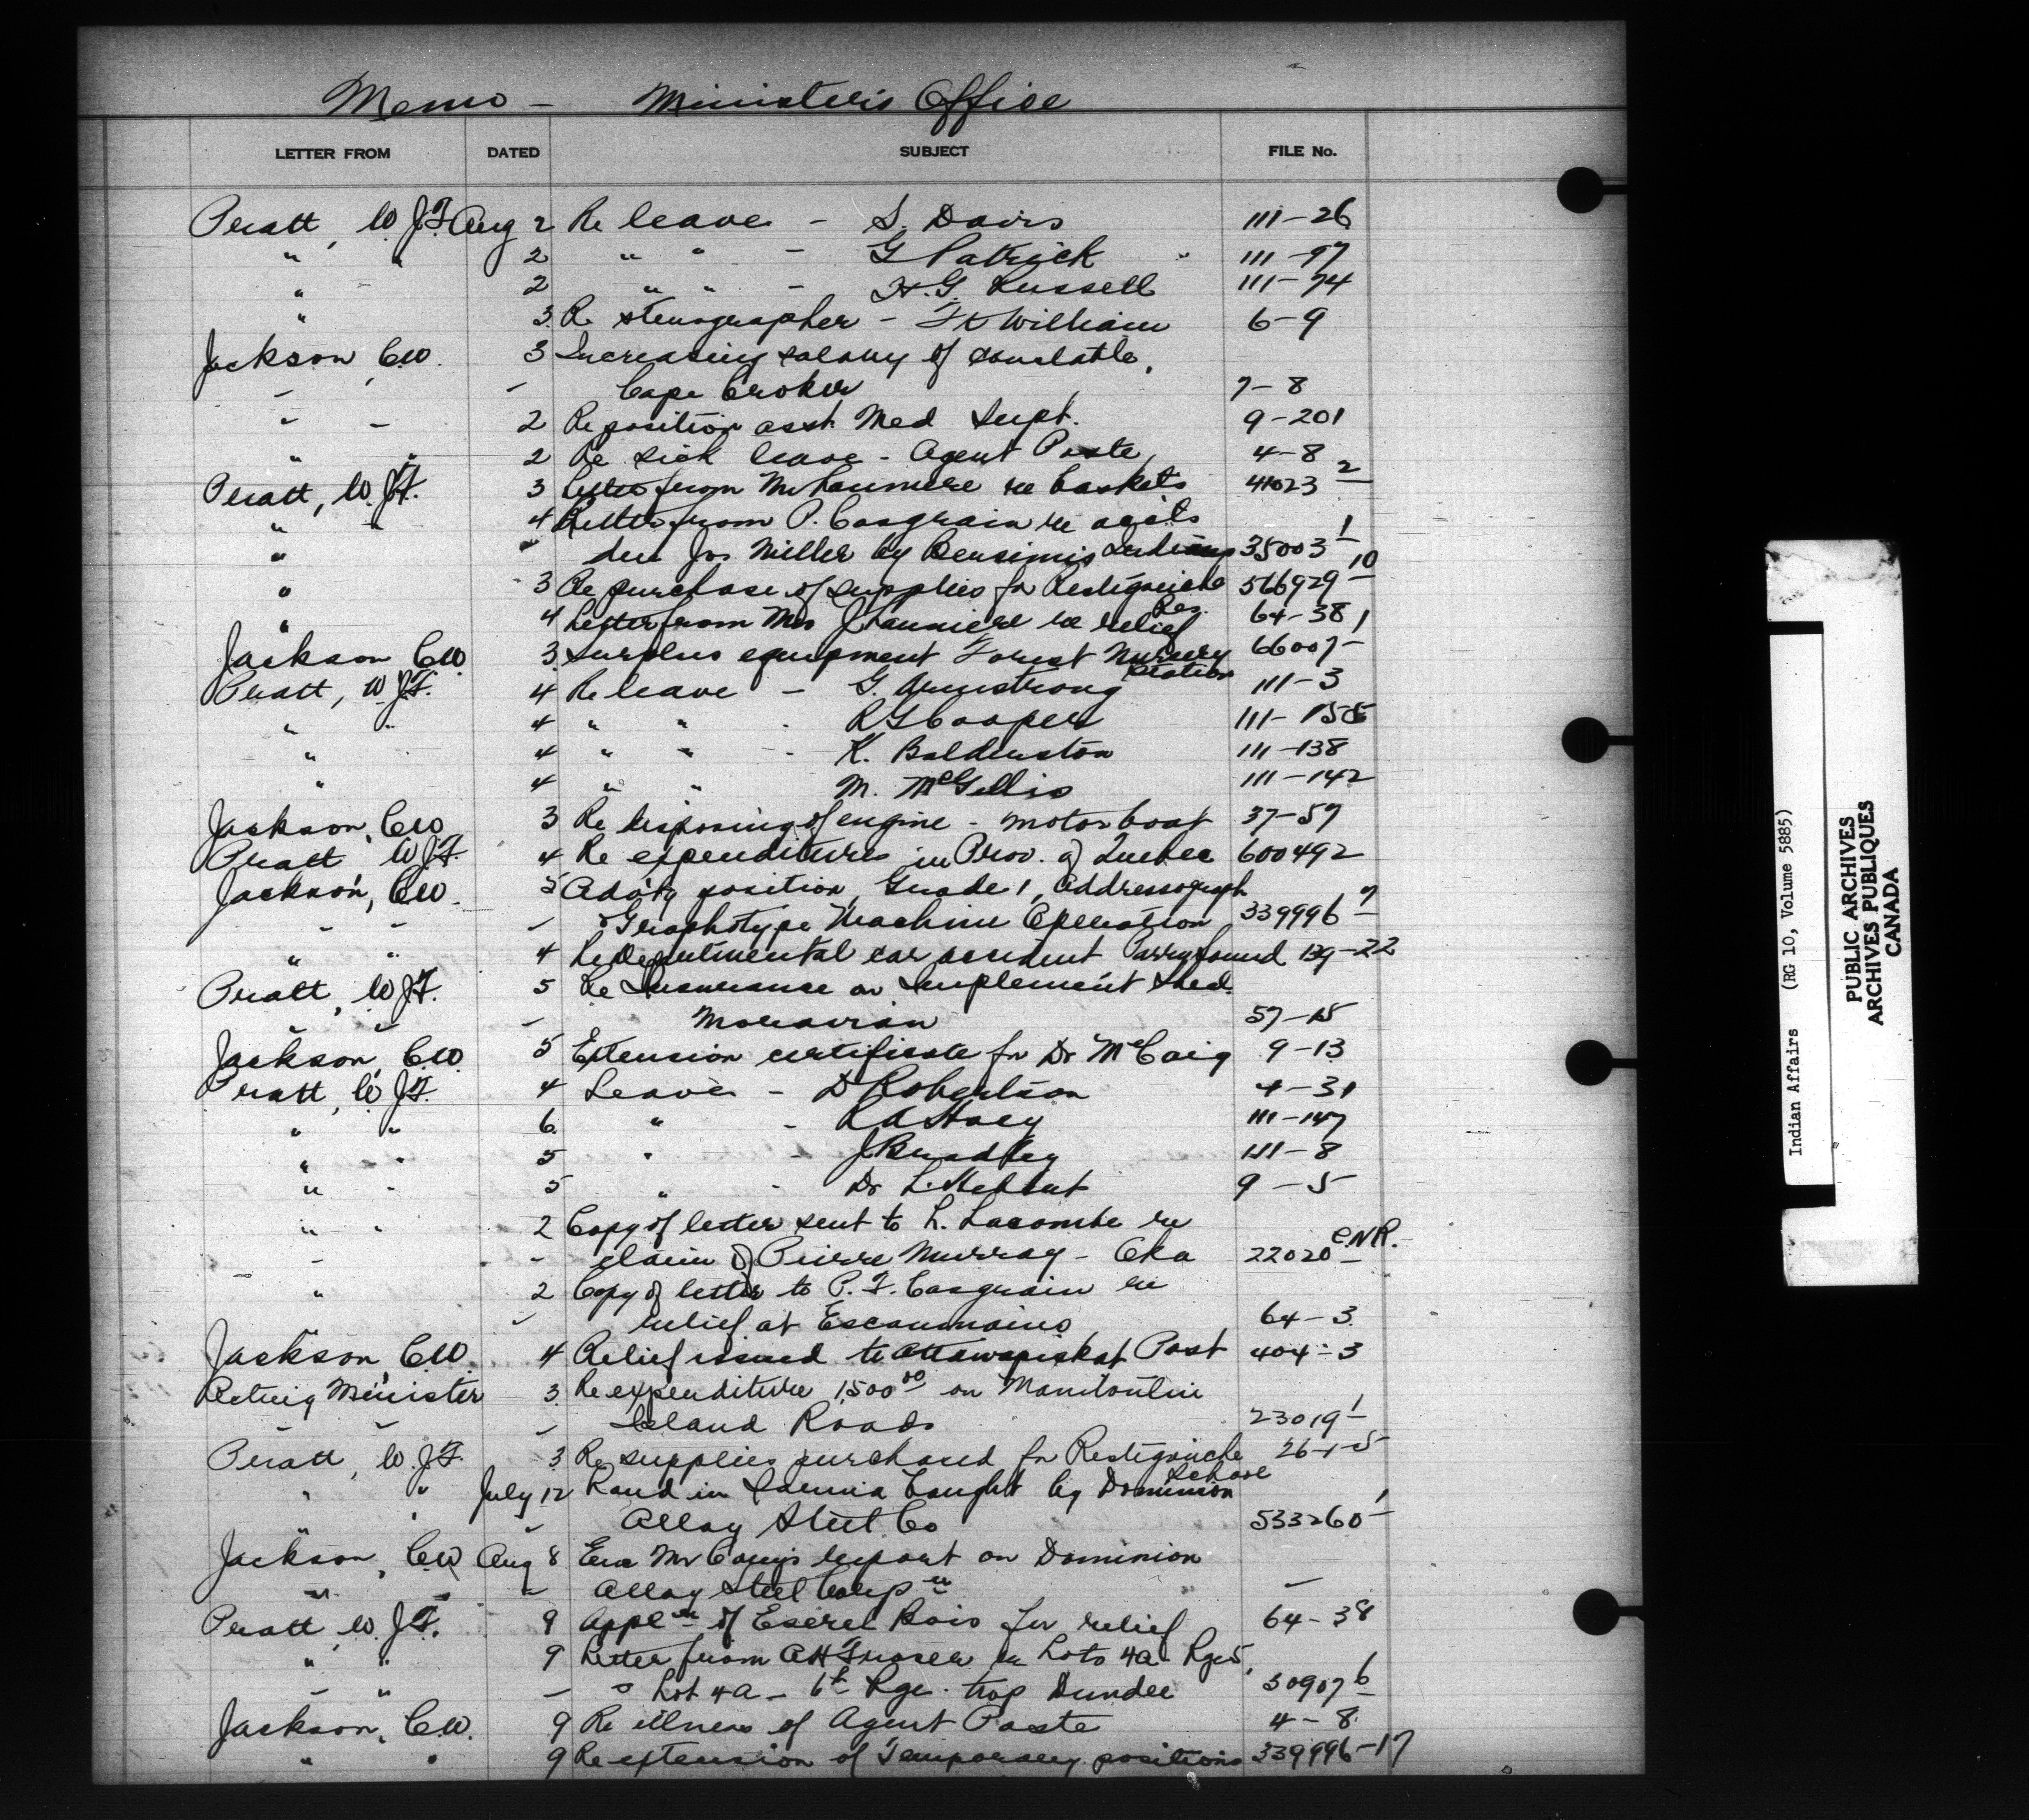 Memo - Minister's Office
LETTER FROM DATED SUBJECT FILE No.
Pratt, W.J.F. Aug 2 Re leave - S. Davis 111-26
" " 2 " " - G Patrick 111-97
" 2 " " - H.G. Russell 111-74
" 3 Re stenographer - Ft William 6-9
Jackson, C.W. 3 Increasing salary of constable,
- - Cape Croker 7-8
- - 2 Re position asst. Med Supt. 9-201
" " 2 Re sick leave - Agent Poste 4-8
Pratt, W.J.F. 3 Letter from re baskets 41023 2
" " 4 Letter from P. Casgrain re accts
" " due Jos Miller by Bersimis Indians 35003 1
" 3 Re purchase of supplies for Restigouche 566929 10
Res.
" 4 Letter from Mrs J. re relief 64-38
Jackson C.W. 3 Surplus equipment Forest Nursery 66007 1
Station
Pratt, W.J.F. 4 Re leave - G. Armstrong 111-3
" " 4 " " - R G Cooper 111-155
" 4 " " - K. Balderston 111-138
" 4 " " M. McGillis 111-142
Jackson, C.W. 3 Re disposing of engine - motor boat 37-57
Pratt W.J.F. 4 Re expenditures in Prov. of Quebec 600492
Jackson, C.W. 5 position, Grade 1, Addressograph
- - - & Graphotype Machine Operation 339996 7
" " 4 Re Departmental car accident Parry Sound 139-22
Pratt, W.J.F. 5 Re Insurance on Implement Shed.
- - - Moravian 57-15
Jackson, C.W. 5 Extension certificate for Dr McCaig 9-13
Pratt, W.J.F. 4 Leave - D Robertson 4-31
" " 6 " - R A Hoey 111-147
" " 5 " - J Bradley 111-8
" - 5 " - Dr L. Hebert 9-5
" " 2 Copy of letter sent to L. Lacombe re
- - claim of Pierre Murray - Oka 22020 CNR.
" 2 Copy of letter to P. F. Casgrain re
" - relief at Escoumains 64-3
Jackson, C.W. 4 Relief issued to Attawapiskat Post 404-3
Acting Minister 3 Re expenditure 1,500 00 on Manitoulin
- - - Island Roads 23019 1
Pratt, W.J.F. 3 Re supplies purchased for Restigouche 26-1-5
School
" " July 12 Land in Sarnia bought by Dominion
" " - Alloy Steel Co 533260 1
Jackson, C.W. Aug 8 Enc Mr report on Dominion
" - - Alloy Steel Corpn -
Pratt W.J.F. 9 Appln of Esdras Bois for relief 64-38
" " 9 Letter from A H Fraser re Lots 4a Rge 5,
- " - & Lot 4A - 6th Rge. twp Dundee 30907 6
Jackson, C.W. 9 Re illness of Agent Poste 4-8
" " 9 Re extension of Temporary positions 339996-17
Indian Affairs (RG 10, Volume 5885)
PUBLIC ARCHIVES
ARCHIVES PUBLIQUES
CANADA